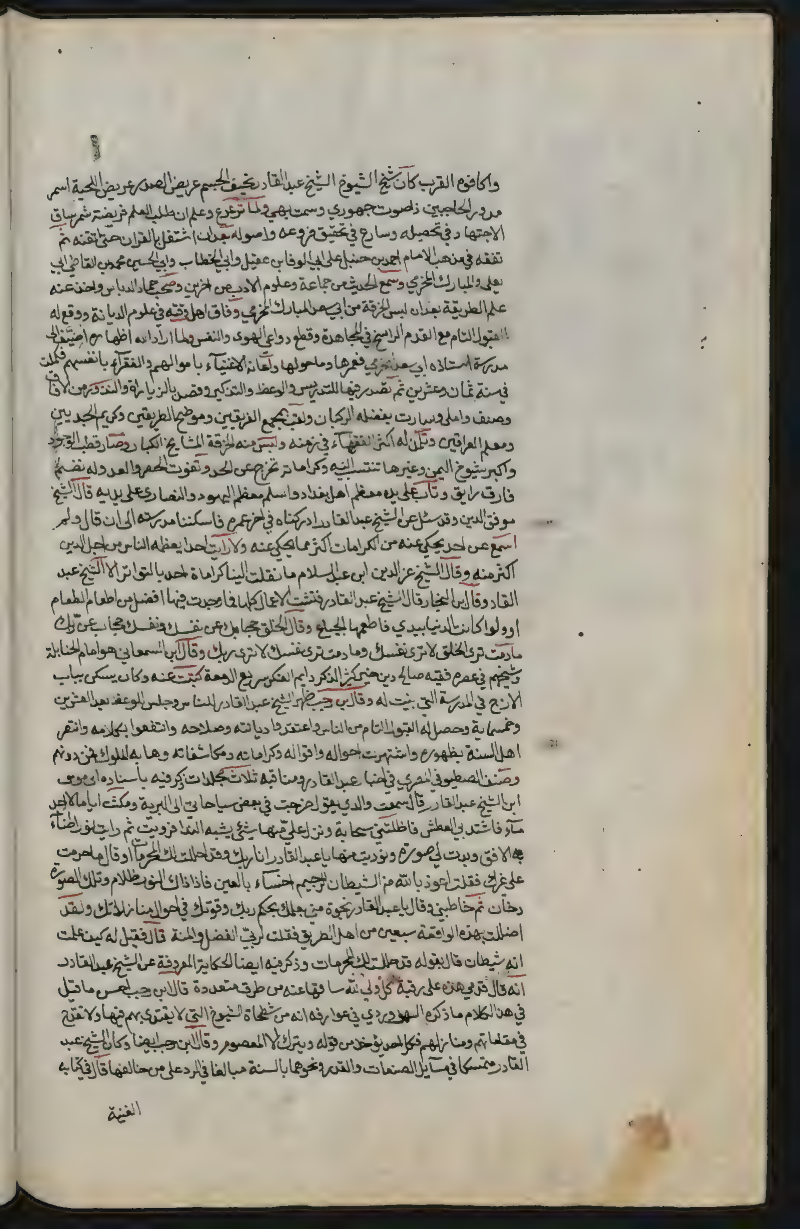 واكافوه القرب كان شيخ الشيوخ الشيخ عبد القادر نحيف الجسم عريض الصدر عريض اللحية اسمر
مدور الحاجبين ذا صوت جهوري وسمت بهي ولما ترعرع وعلم ان طلب العلم فريضة شمر ساق
الاجتهاد في تحصيله وسارع في تحقيق فروعه واصوله بعد ان اشتغل بالقران حتى اتقنه ثم
تفقه في مذهب الامام احمد بن حنبل على ابي الوفا بن عقيل وابي الخطاب وابي الحسين محمد بن القاضي ابي
يعلى والمبارك المخرمي وسمع الحديث من جماعة وعلوم الادب من اخرين وصحب حماد الدباس واخذ عنه
علم الطريقة بعد ان لبس الخرقة من ابي سعد المبارك المخرمي وفاق اهل وقته في علوم الديانة ووقع له
القبول التام مع القدم الراسخ في المجاهدة وقطع دواعي الهوى والنفس ولما اراد الله اظهاره اضيف الى
مدرسة استاذه ابي سعد المخرمي فعمرها وما حولها واعانه الاغنياء باموالهم والفقراء بانفسهم فكملت
في سنة ثمان وعشرين ثم تصدر فيها للتدريس والوعظ والتذكير وقصد بالزيارة والنذور من الافاق
وصنف واملى وسارت بفضله الركبان ولقب بمجمع الفريقين وموضح الطريقين وكريم الجدين
ومعلم العراقين وتلمذ له اكثر الفقهاء في زمنه ولبس منه الخرقة المشايخ الكبار وصار قطب الوجود
واكبر شيوخ اليمن وغيرها تنتسب اليه وكراماته تخرج عن الحد وتفوت الحصر والعد وله نظم
فارق رايق وتاب على يده معظم اهل بغداد واسلم معظم اليهود والنصارى على يديه قال الشيخ
موفق الدين وقد سئل عن الشيخ عبد القادر ادركناه في اخر عمره فاسكننا مدرسته الى ان قال ولم
اسمع عن احد يحكى عنه من الكرامات اكثر مما يحكى عنه ولا رايت احدا يعظمه الناس من اجل الدين
اكثر منه وقال الشيخ عز الدين ابن عبد السلام ما نقلت الينا كرامة احد بالتواتر الا الشيخ عبد
القادر وقال ابن النجار قال الشيخ عبد القادر فتشت الاعمال كلها فما وجدت فيها افضل من اطعام الطعام
اود لو كانت الدنيا بيدي فاطعمها الجياع وقال الخلق حجابك عن نفسك ونفسك حجابك عن ربك
ما دمت ترى الخلق لا ترى نفسك وما دمت ترى نفسك لا ترى ربك وقال ابن السمعاني هو امام الحنابلة
وشيخهم في عصره فقيه صالح دين خير كثير الذكر دايم الفكر سريع الدمعة كتبت عنه وكان يسكن بباب
الازج في المدرسة التي بنيت له وقال ابن رجب ظهر الشيخ عبد القادر للناس وجلس للوعظ بعد العشرين
وخمسماية وحصل له القبول التام من الناس واعتقدوا ديانته وصلاحه وانتفعوا بكلامه وانتصر
اهل السنة بظهوره واشتهرت احواله واقواله وكراماته ومكاشفاته وهابه الملوك فمن دونهم
وصنف الشطنوفي المصري في اخبار عبد القادر ومناقبه ثلاث مجلدات ذكر فيه باسناده الى موسى
ابن الشيخ عبد القادر قال سمعت والدي يقول خرجت في بعض سياحاتي الى البرية ومكثت اياما لا اجد
ماء فاشتد بي العطش فاظلتني سحابة ونزل علي منها شيء يشبه الندا فرويت ثم رايت نورا اضاء
به الافق وبدت لي صورة ونوديت منها يا عبد القادر انا ربك وقد احللت لك المحرمات او قال ما حرمت
على غيرك فقلت اعوذ بالله من الشيطان الرجيم اخساء يا لعين فاذا ذاك النور ظلام وتلك الصورة
دخان ثم خاطبني وقال يا عبد القادر نجوت مني بعلمك بحكم ربك وقوتك في احوال منازلاتك ولقد
اضللت بهذه الواقعة سبعين من اهل الطريق فقلت لربي الفضل والمنة قال فقيل له كيف علمت
انه شيطان قال بقوله قد حللت لك المحرمات وذكر فيه ايضا الحكاية المعروفة عن الشيخ عبد القادر
انه قال قدمي هذه على رقبة كل ولي لله ساقها عنه من طرق متعددة قال ابن رجب احسن ما قيل
في هذا الكلام ما ذكره السهروردي في عوارفه انه من شطحات الشيوخ التي لا يقتدى بهم فيها ولا تقدح
في مقاماتهم ومنازلهم فكل احد يؤخذ من قوله ويترك الا المعصوم وقال ابن رجب ايضا وكان الشيخ عبد
القادر متمسكا في مسايل الصفات والقدر ونحوهما بالسنة مبالغا في الرد على من خالفها قال في كتابه
الغنية